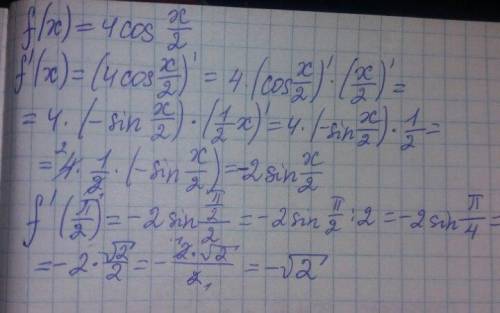 f(x) = 4 cos x/2
f'(x) = (4cos x/2)' = 4 · (cos x/2)' · (x/2)' =
= 4 · (-sin x/2) · (1/2 x)' = 4 · (-sin x/2) · 1/2 =
= ²4 · 1/2 · (-sin x/2) = -2 sin x/2
f'(π/2) = -2 sin (π/2)/2 = -2 sin π/2 : 2 = -2 sin π/4 =
= -2 · √2/2 = - 2·√2/2 = -√2